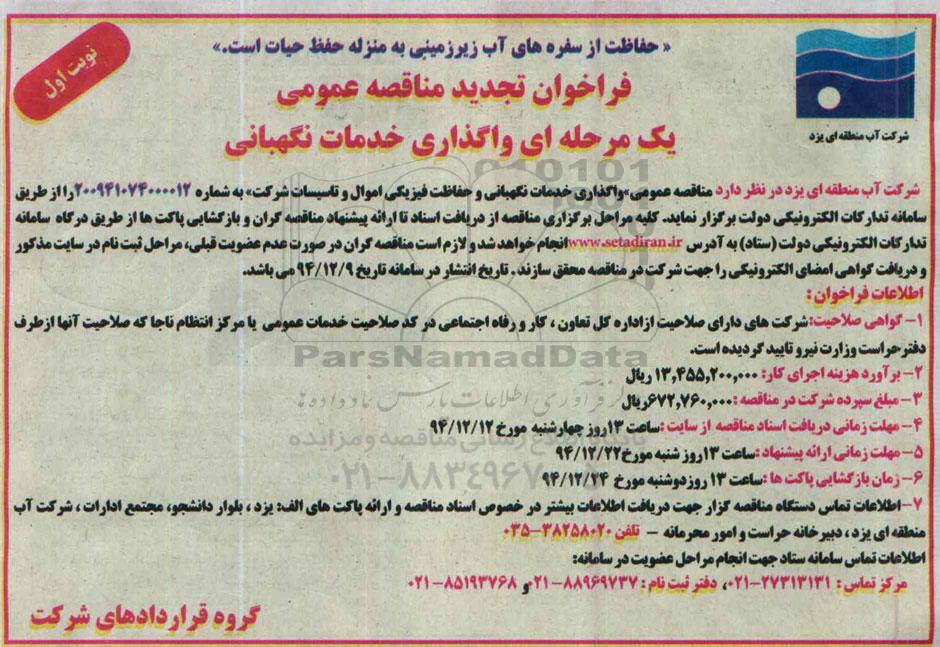 « حفاظت از سفره های آب زیرزمینی به منزله حفظ حیات است.»
نوبت اول
فراخوان تجدید مناقصه عمومی
یک مرحله ای واگذاری خدمات نگهبانی
شرکت آب منطقه ای یزد
شرکت آب منطقه ای یزد در نظر دارد مناقصه عمومی«واگذاری خدمات نگهبانی و حفاظت فیزیکی اموال و تاسیسات شرکت» به شماره ۲۰۰۹۴۱۰۷۴۰۰۰۰۱۲ را از طریق
سامانه تدارکات الکترونیکی دولت برگزار نماید. کلیه مراحل برگزاری مناقصه از دریافت اسناد تا ارائه پیشنهاد مناقصه گران و بازگشایی پاکت ها از طریق درگاه سامانه
تدارکات الکترونیکی دولت (ستاد) به آدرس www.setadiran.ir انجام خواهد شد و لازم است مناقصه گران در صورت عدم عضویت قبلی، مراحل ثبت نام در سایت مذکور
و دریافت گواهی امضای الکترونیکی را جهت شرکت در مناقصه محقق سازند . تاریخ انتشار در سامانه تاریخ ۹۴/۱۲/۹ می باشد.
اطلاعات فراخوان :
۱- گواهی صلاحیت: شرکت های دارای صلاحیت ازاداره کل تعاون ، کار و رفاه اجتماعی در کد صلاحیت خدمات عمومی یا مرکز انتظام ناجا که صلاحیت آنها ازطرف
دفترحراست وزارت نیرو تایید گردیده است.
ParsNamadData
۲- برآورد هزینه اجرای کار: ۱۳,۴۵۵,۲۰۰,۰۰۰ ریال
۳- مبلغ سپرده شرکت در مناقصه : ۶۷۲,۷۶۰,۰۰۰ریال
۴- مهلت زمانی دریافت اسناد مناقصه از سایت : ساعت ۱۳ روز چهارشنبه مورخ ۹۴/۱۲/۱۲
۵- مهلت زمانی ارائه پیشنهاد : ساعت ۱۳ روز شنبه مورخ ۹۴/۱۲/۲۲
۶- زمان بازگشایی پاکت ها : ساعت ۱۳ روزدوشنبه مورخ ۹۴/۱۲/۲۴
۷- اطلاعات تماس دستگاه مناقصه گزار جهت دریافت اطلاعات بیشتر در خصوص اسناد مناقصه و ارائه پاکت های الف: یزد ، بلوار دانشجو، مجتمع ادارات ، شرکت آب
منطقه ای یزد ، دبیرخانه حراست و امور محرمانه – تلفن ۳۸۲۵۸۰۲۰-۰۳۵
اطلاعات تماس سامانه ستاد جهت انجام مراحل عضویت در سامانه:
مرکز تماس : ۲۷۳۱۳۱۳۱-۰۲۱، دفتر ثبت نام : ۸۸۹۶۹۷۳۷-۰۲۱ و ۸۵۱۹۳۷۶۸-۰۲۱
گروه قراردادهای شرکت